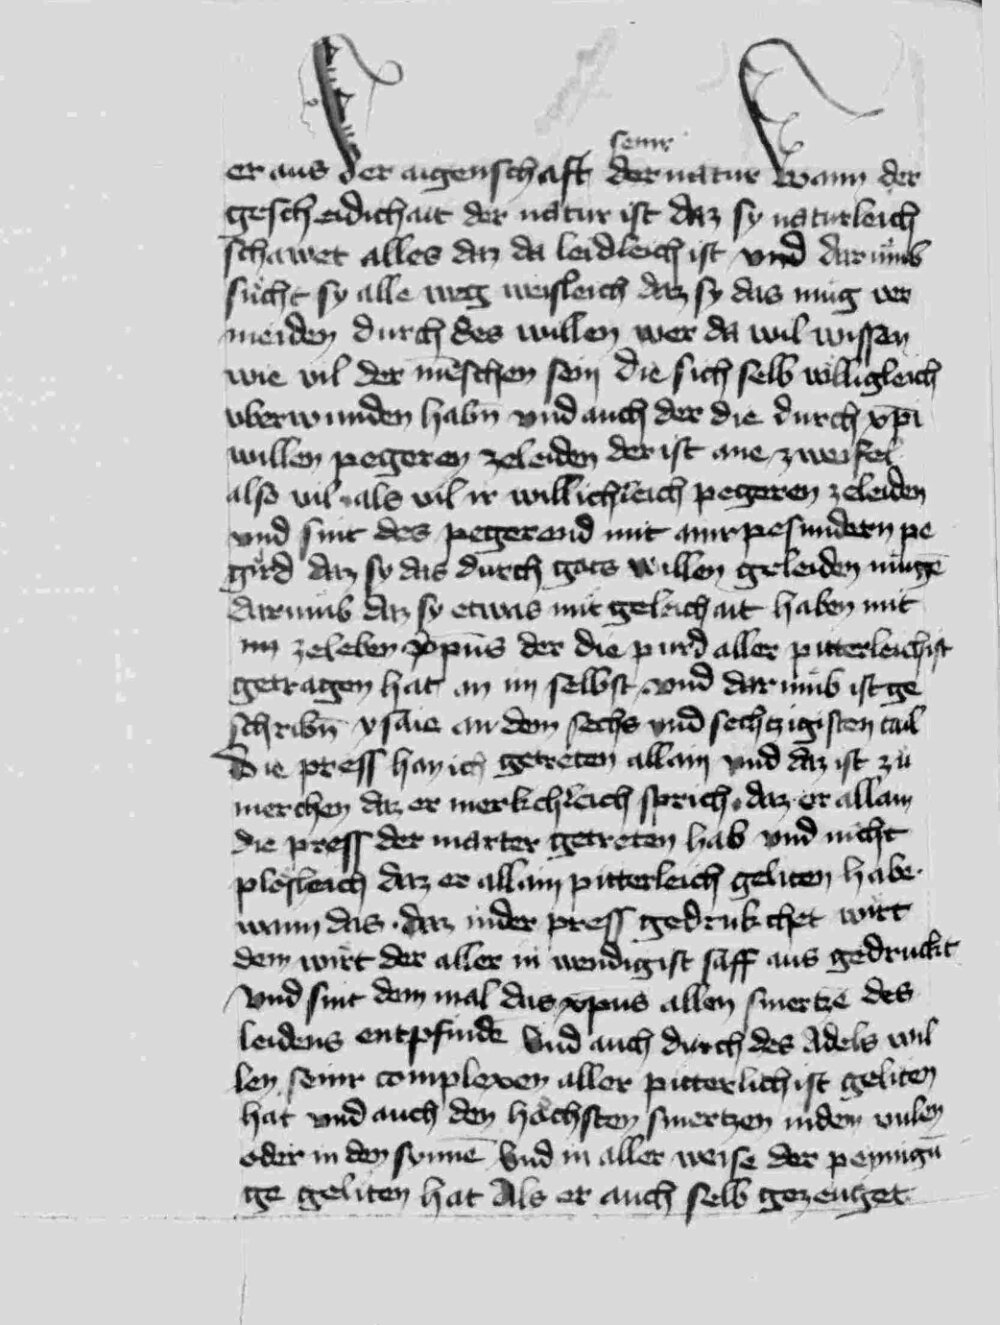 seinr
er aus der aigenschaft der natur wann der
geschaidichait der natur ist daz sy naturleich
schawet alles daz da leidleich ist vnd darumb
sucht sy alle weg weisleich daz sy das mug ver
meiden durch des willen wer da wil wissen
wie vil der mēschen sein die sich selb williglich
vberwunden habn̄ vnd auch der die durch xp̄i
willen pegeren zeleiden der ist ane zweifel
also vil als vil ir willichleich pegeren zeleiden
vnd sint des pegerend mit ainr pesundern pe
gird daz sy das durch gots willen geleiden mugē
darumb daz sy etwas mit geleichait haben mit
im zeleben xp̄us der die purd aller pitterleichist
getragen hat an im selbst vnd darumb ist ge
schribn̄ ysaie an dem sechs vnd sechtzigisten tail
die press han ich getreten allain vnd daz ist zu
merchen daz er merkchleich sprich daz er allain
die press der marter getreten hab vnd nicht
plosleich daz er allain pitterleich geliten habe
wann das daz in der press gedrukchet wirt
dem wirt der aller in wendigist saff aus gedruckt
Vnd sint dem mal das xp̄us allen smertzē des
leidens entpfindt Vnd auch durch des Adels wil
len seinr complexen aller pitterlichist geliten
hat vnd auch den hochsten smertzen in dem willen
oder in den synnē Vnd in aller weise der peynigū
ge geliten hat Als er auch selb gezeuget